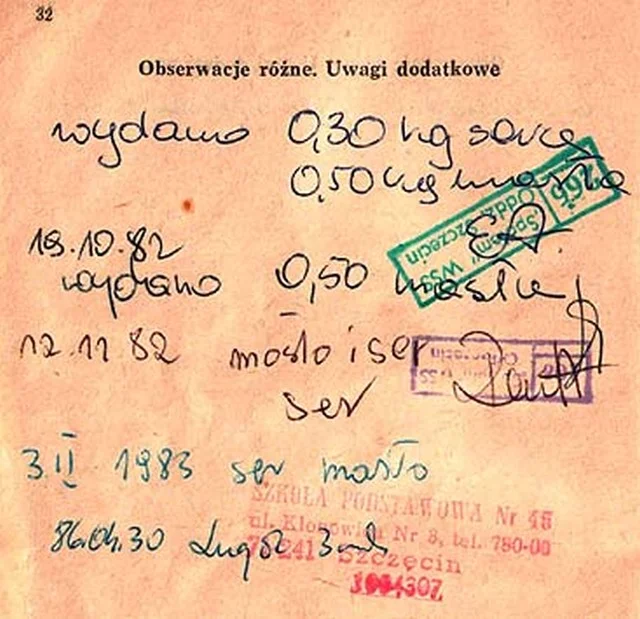 32
Obserwacje różne. Uwagi dodatkowe
wydano 0,30 kg sera
0,50 kg masła
266
"Społem" WSS
Oddz. Szczecin
19.10.82
wydano 0,50 masła
12.11 82 masło i ser
ser
3.II 1983 ser masło
SZKOŁA PODSTAWOWA Nr 45
ul. Klonowica Nr 3, tel. 780-00
241 Szczecin
86.04.30